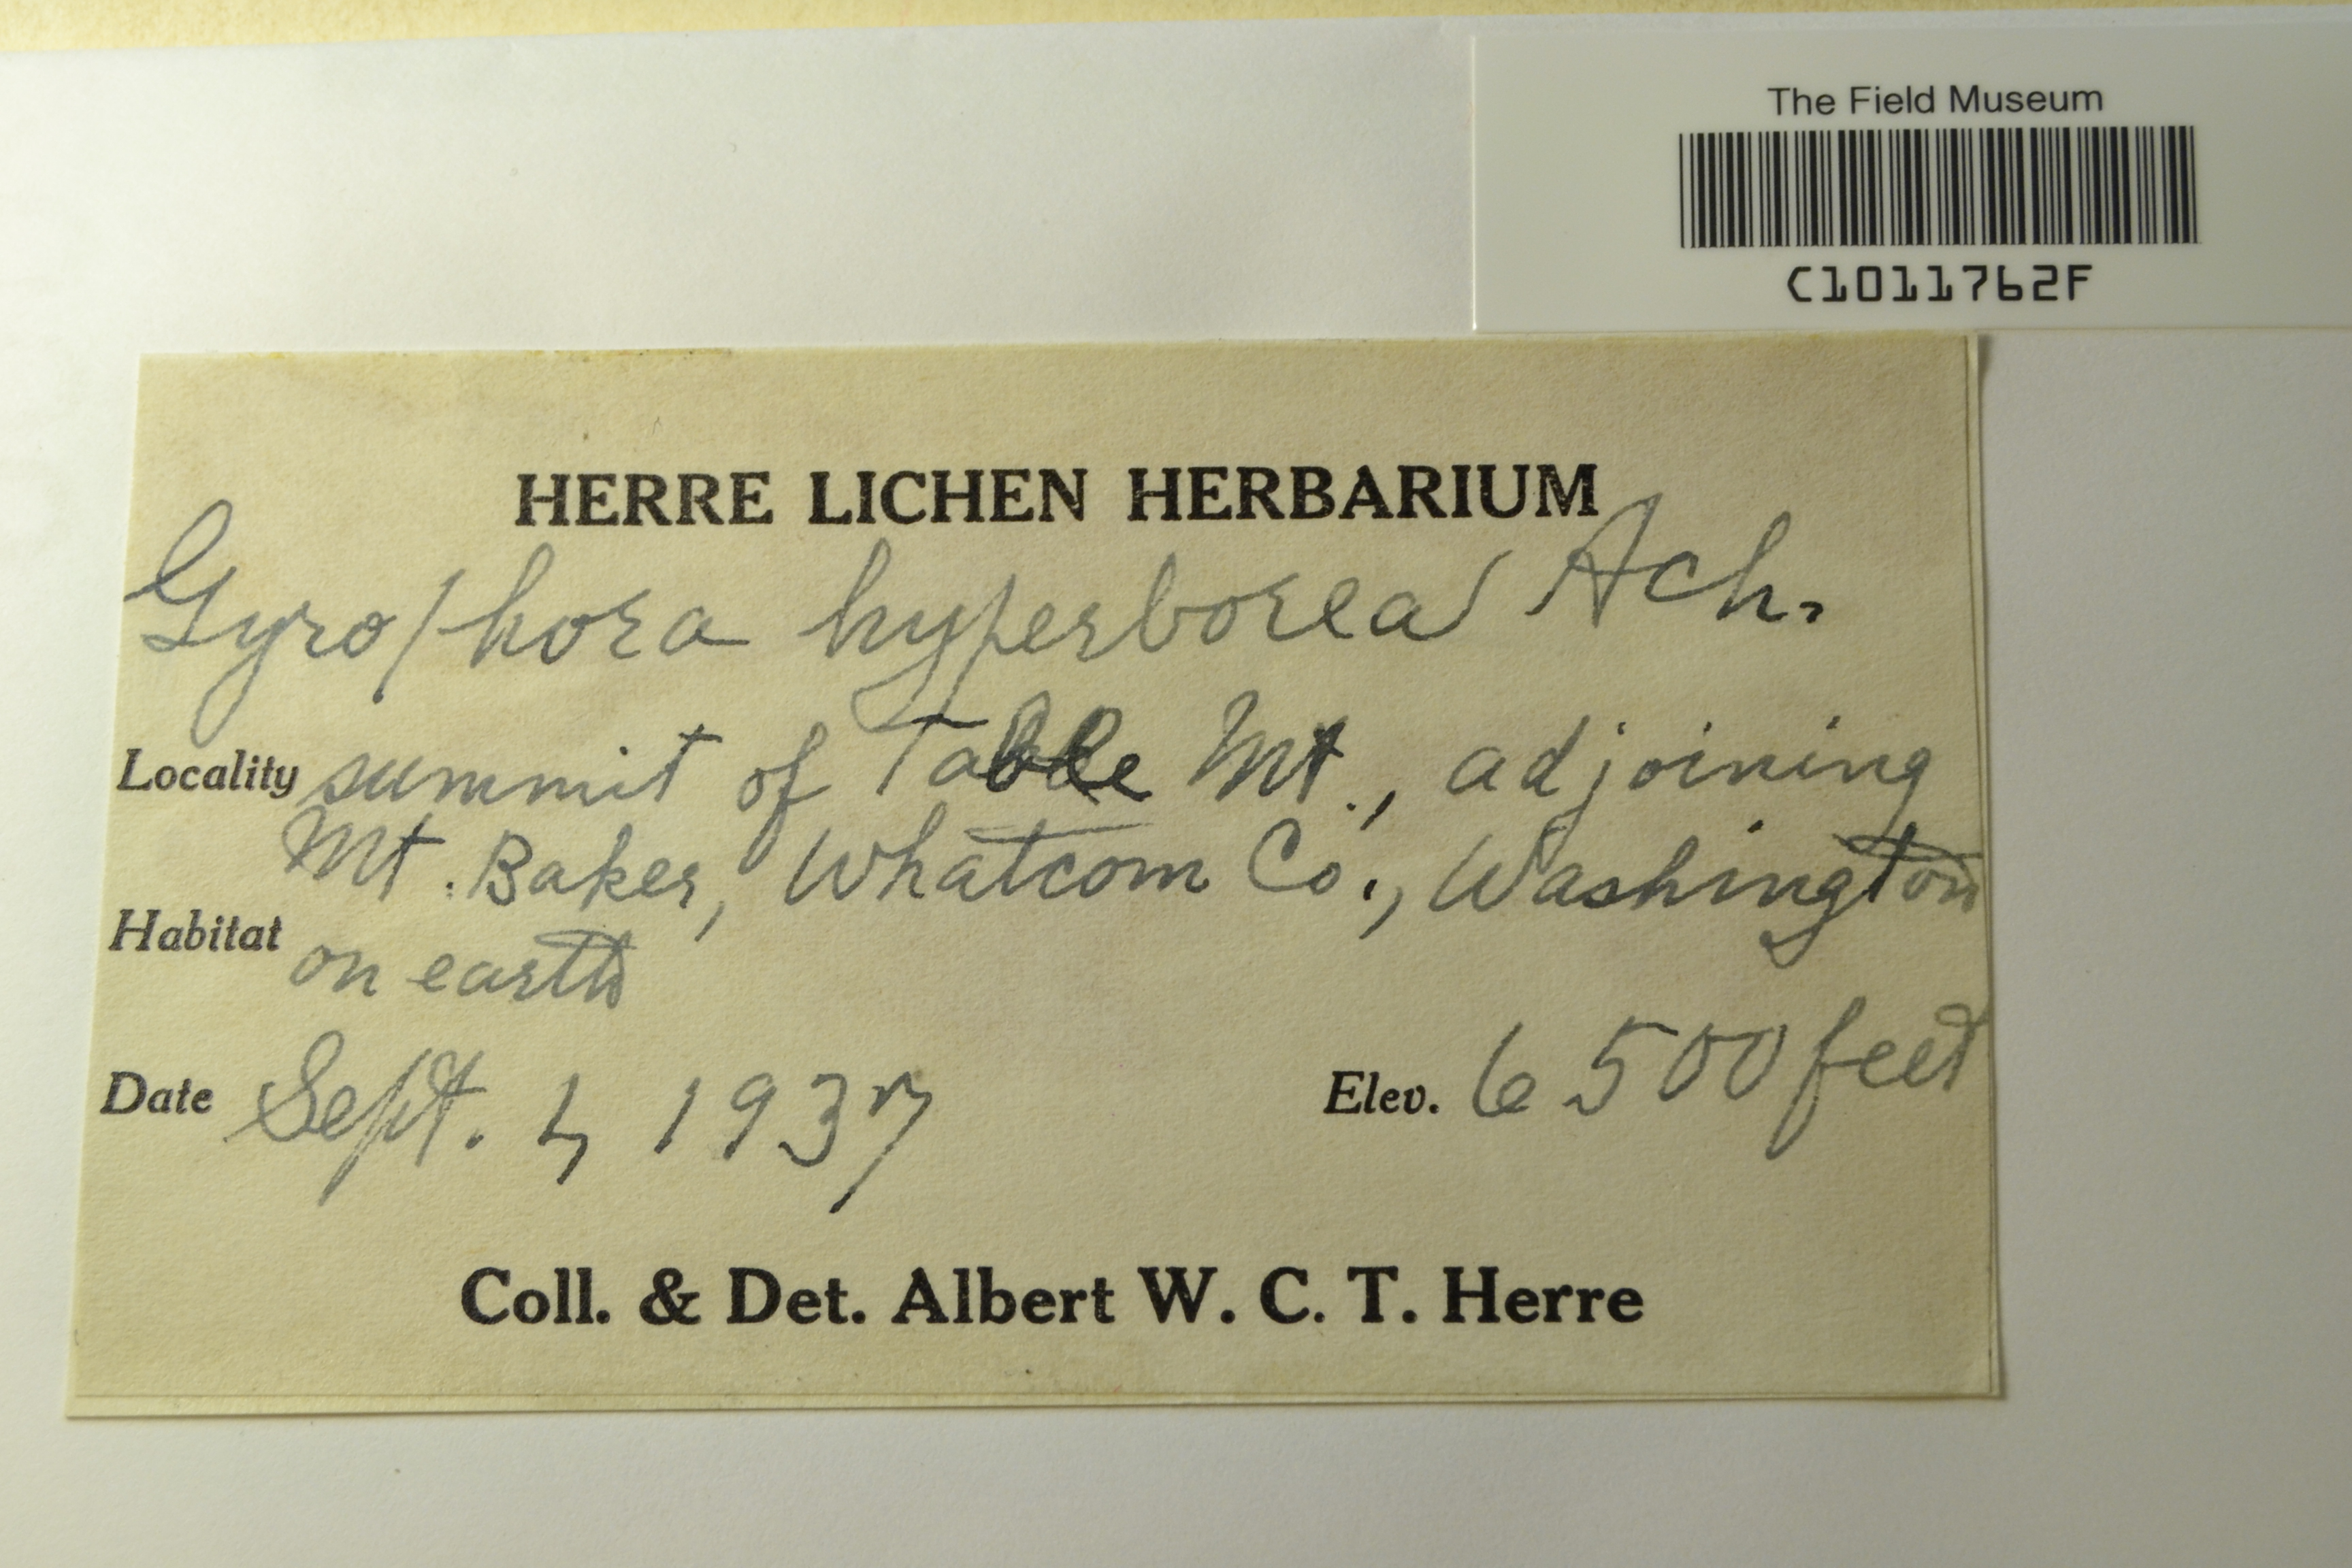 The Field Museum
C1011762F
HERRE LICHEN HERBARIUM
Gyrophora hyperborea Ach.
Locality summit of Table Mt., adjoining
Mt. Baker, Whatcom Co., Washington
Habitat on earth
Date Sept. 4, 1937 Elev. 6500 feet
Coll. & Det. Albert W. C. T. Herre